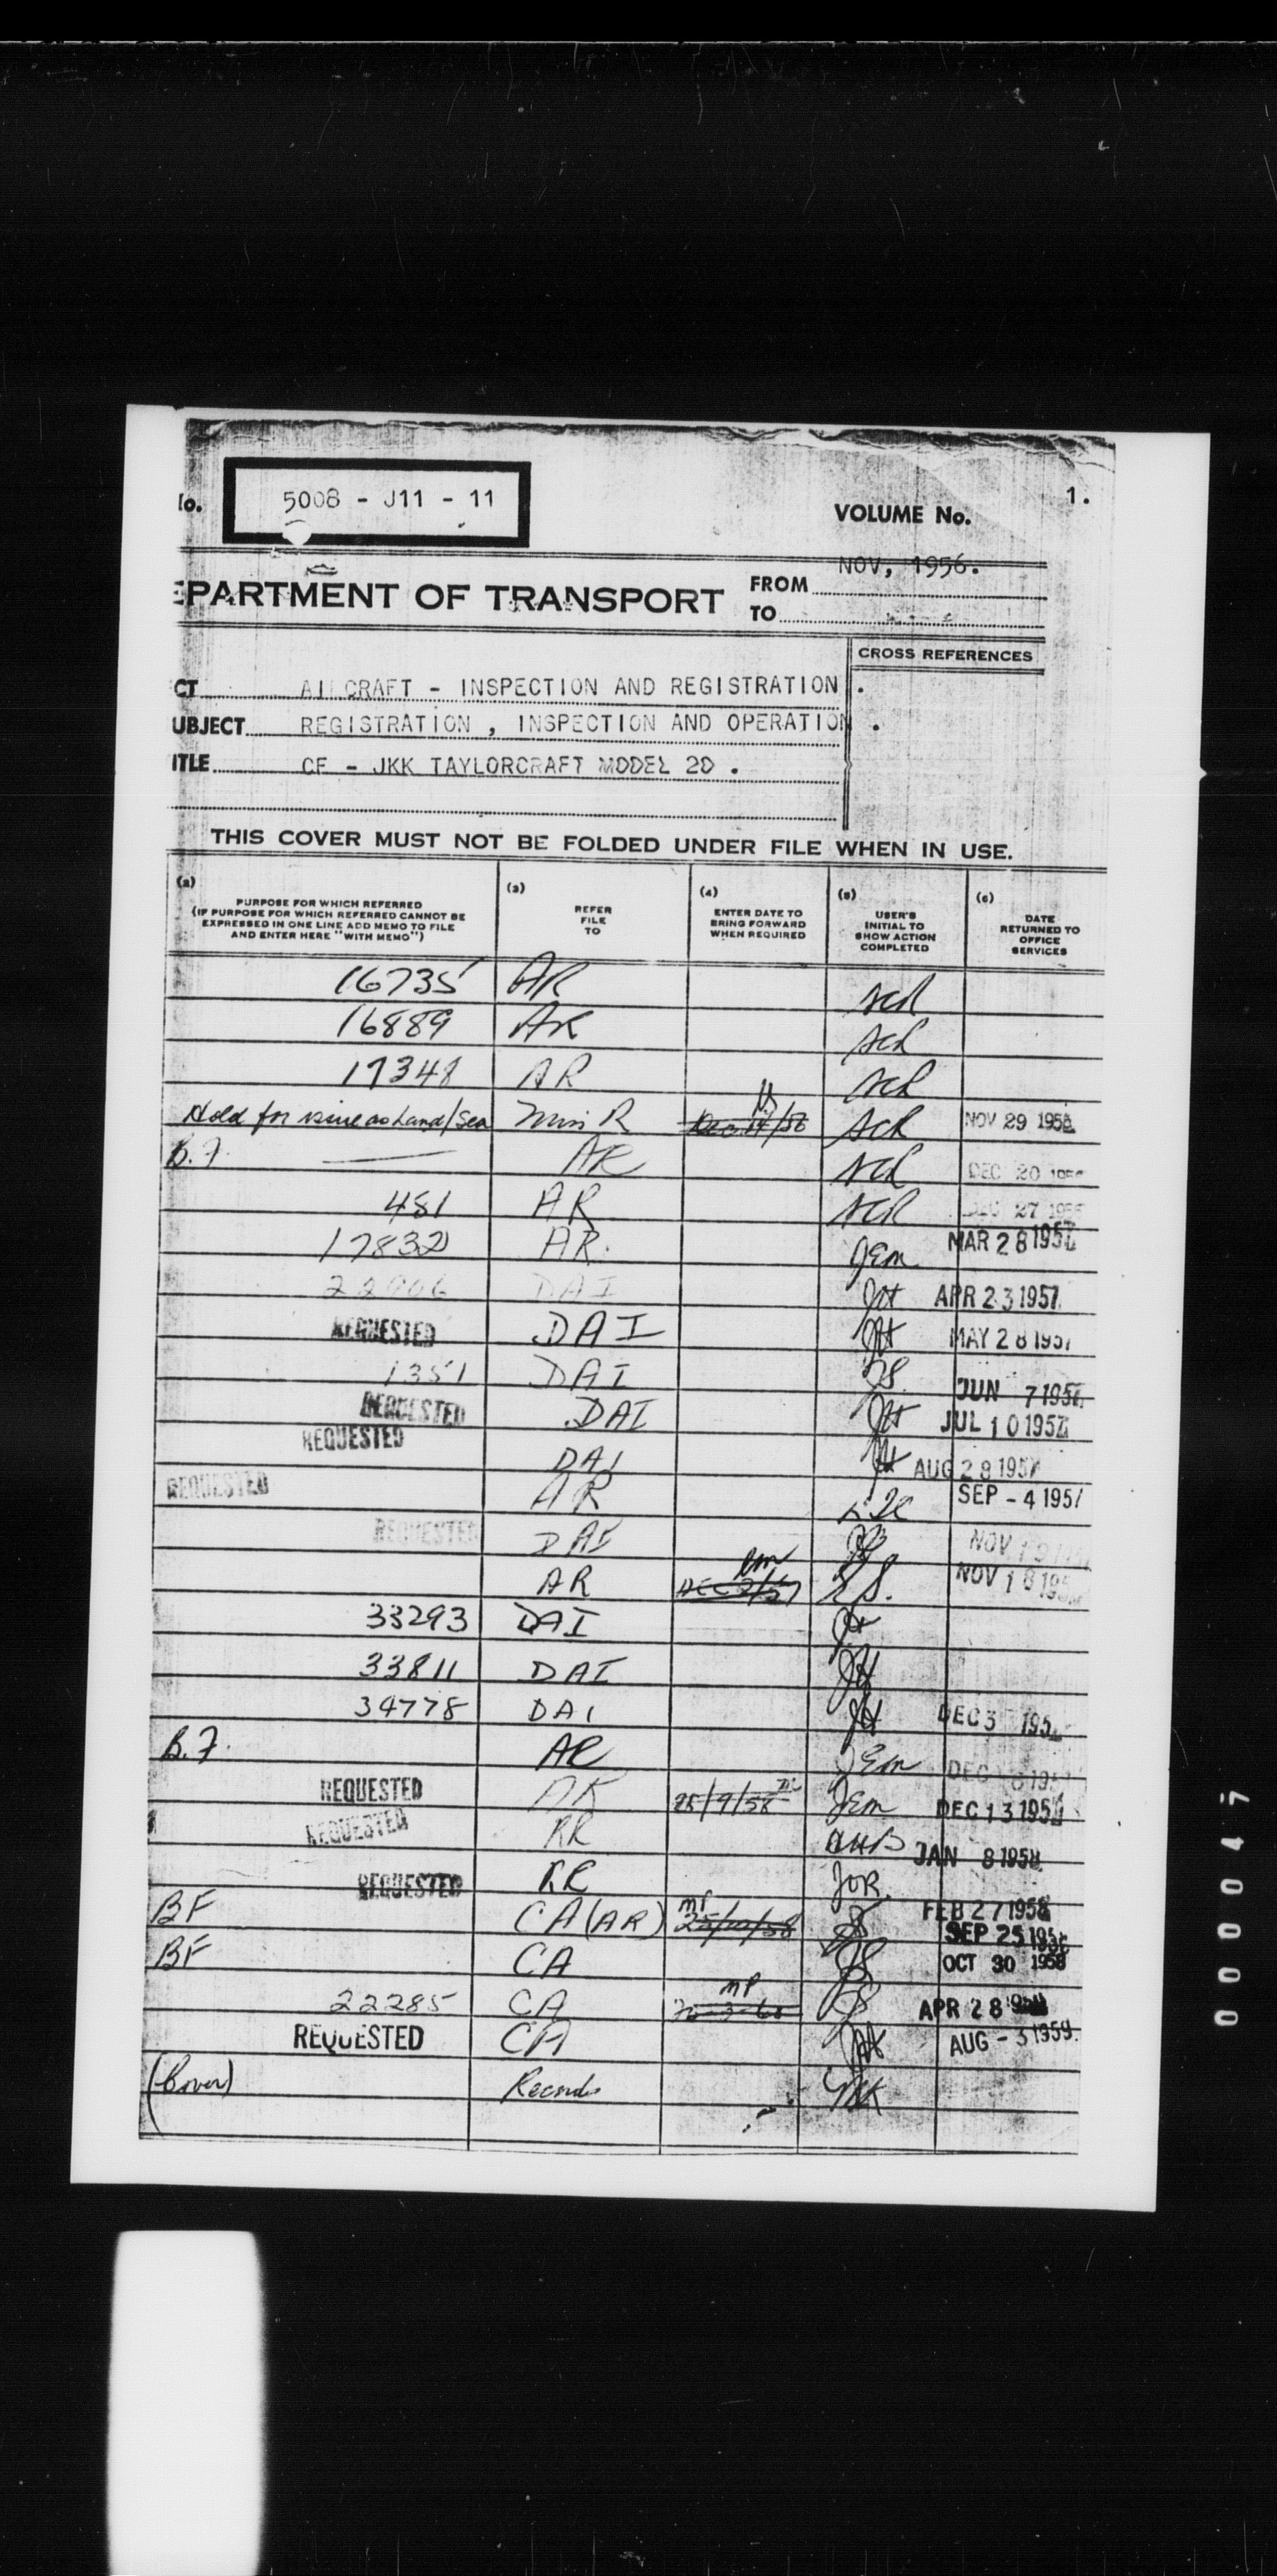 No. 5008 - J11 - 11
VOLUME No. 1.
DEPARTMENT OF TRANSPORT
FROM NOV, 1956.
TO
CROSS REFERENCES
CT AIRCRAFT - INSPECTION AND REGISTRATION .
UBJECT REGISTRATION , INSPECTION AND OPERATION .
ITLE CF - JKK TAYLORCRAFT MODEL 20 .
THIS COVER MUST NOT BE FOLDED UNDER FILE WHEN IN USE.
(2) PURPOSE FOR WHICH REFERRED
(IF PURPOSE FOR WHICH REFERRED CANNOT BE
EXPRESSED IN ONE LINE ADD MEMO TO FILE
AND ENTER HERE "WITH MEMO")
(3) REFER
FILE
TO
(4) ENTER DATE TO
BRING FORWARD
WHEN REQUIRED
(5) USER'S
INITIAL TO
SHOW ACTION
COMPLETED
(6) DATE
RETURNED TO
OFFICE
SERVICES
16735 AR
16889 AR
17348 AR
Hold for issue as Land/Sea R NOV 29 1956
B.F. AR DEC 20
481 AR 27
17832 AR. Jem MAR 28 1957
22906 DAI JH APR 23 1957
REQUESTED DAI JH MAY 28 1957
1351 DAI JUN 7 1957
REQUESTED DAI JH JUL 10 1957
REQUESTED DAI AUG 28 1957
REQUESTED AR SEP - 4 1957
REQUESTED DAI NOV
AR NOV 18
33293 DAI JH
33811 DAI JH
34778 DAI JH DEC 3
B.F. AR Jem DEC
REQUESTED AR Jem DEC 13
REQUESTED RR JAN 8 1958
REQUESTED RR JOR. FEB 27 1958
BF CA (AR) 25/10/58 SEP 25
BF CA OCT 30 1958
22285 CA APR 28
REQUESTED CA JH AUG - 3 1959.
(Cover) Records
000047